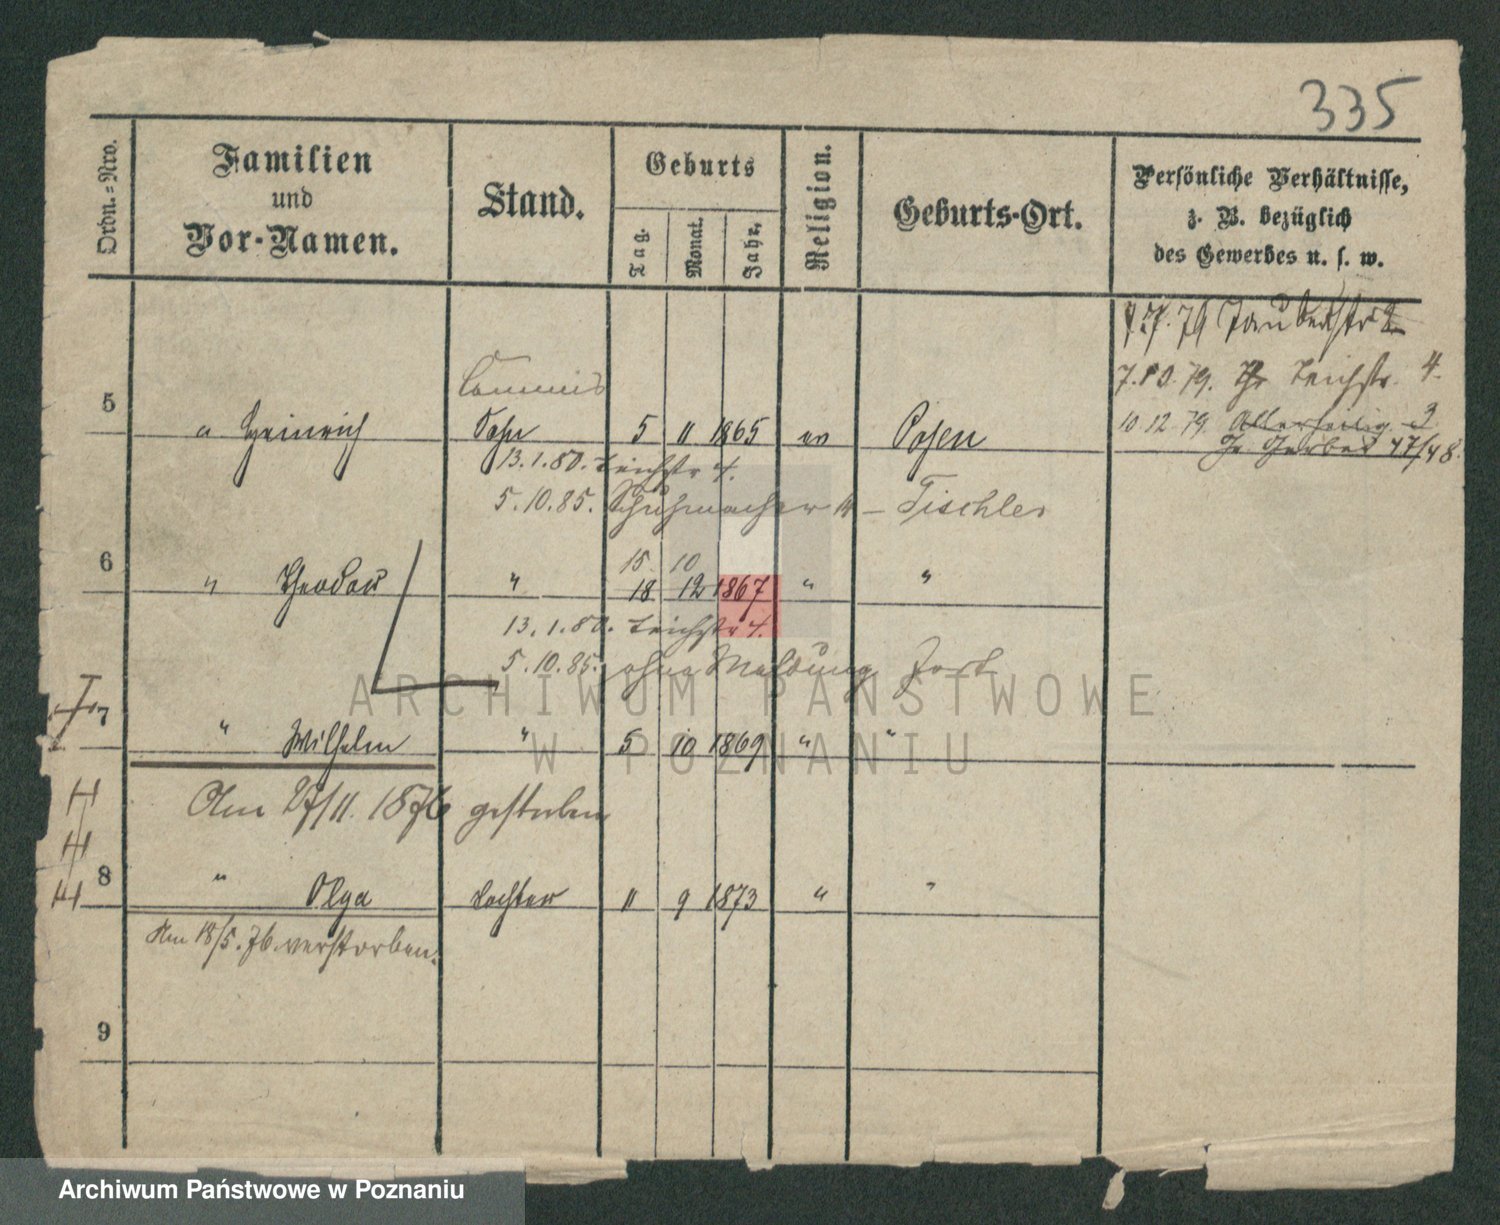 335
Ordn.=Nro.
Familien
und
Vor-Namen.
Stand.
Geburts
Tag.
Monat.
Jahr,
Religion.
Geburts-Ort.
Persönliche Verhältnisse,
z. B. bezüglich
des Gewerbes u. s. w.
79
7.10.79. Teichstr. 4.
10.12.79 Allerheilig. 3
Gr. Gerber 47/48.
Commis
5 " Heinrich Sohn 5 11 1865 ev Posen
13.1.80. Teichstr 4.
5.10.85. Schuhmacher 14 – Tischler
15. 10
6 " Theodor " 18 12 1867 " "
13.1.80. Teichstr 4.
5.10.85. ohne Meldung fort
7 " Wilhelm " 5 10 1869 " "
Am 27/11. 1876 gestorben
8 " Olga Tochter 11 9 1873 " "
Am 18/5.76 verstorben.
9
ARCHIWUM PAŃSTWOWE
W POZNANIU
Archiwum Państwowe w Poznaniu